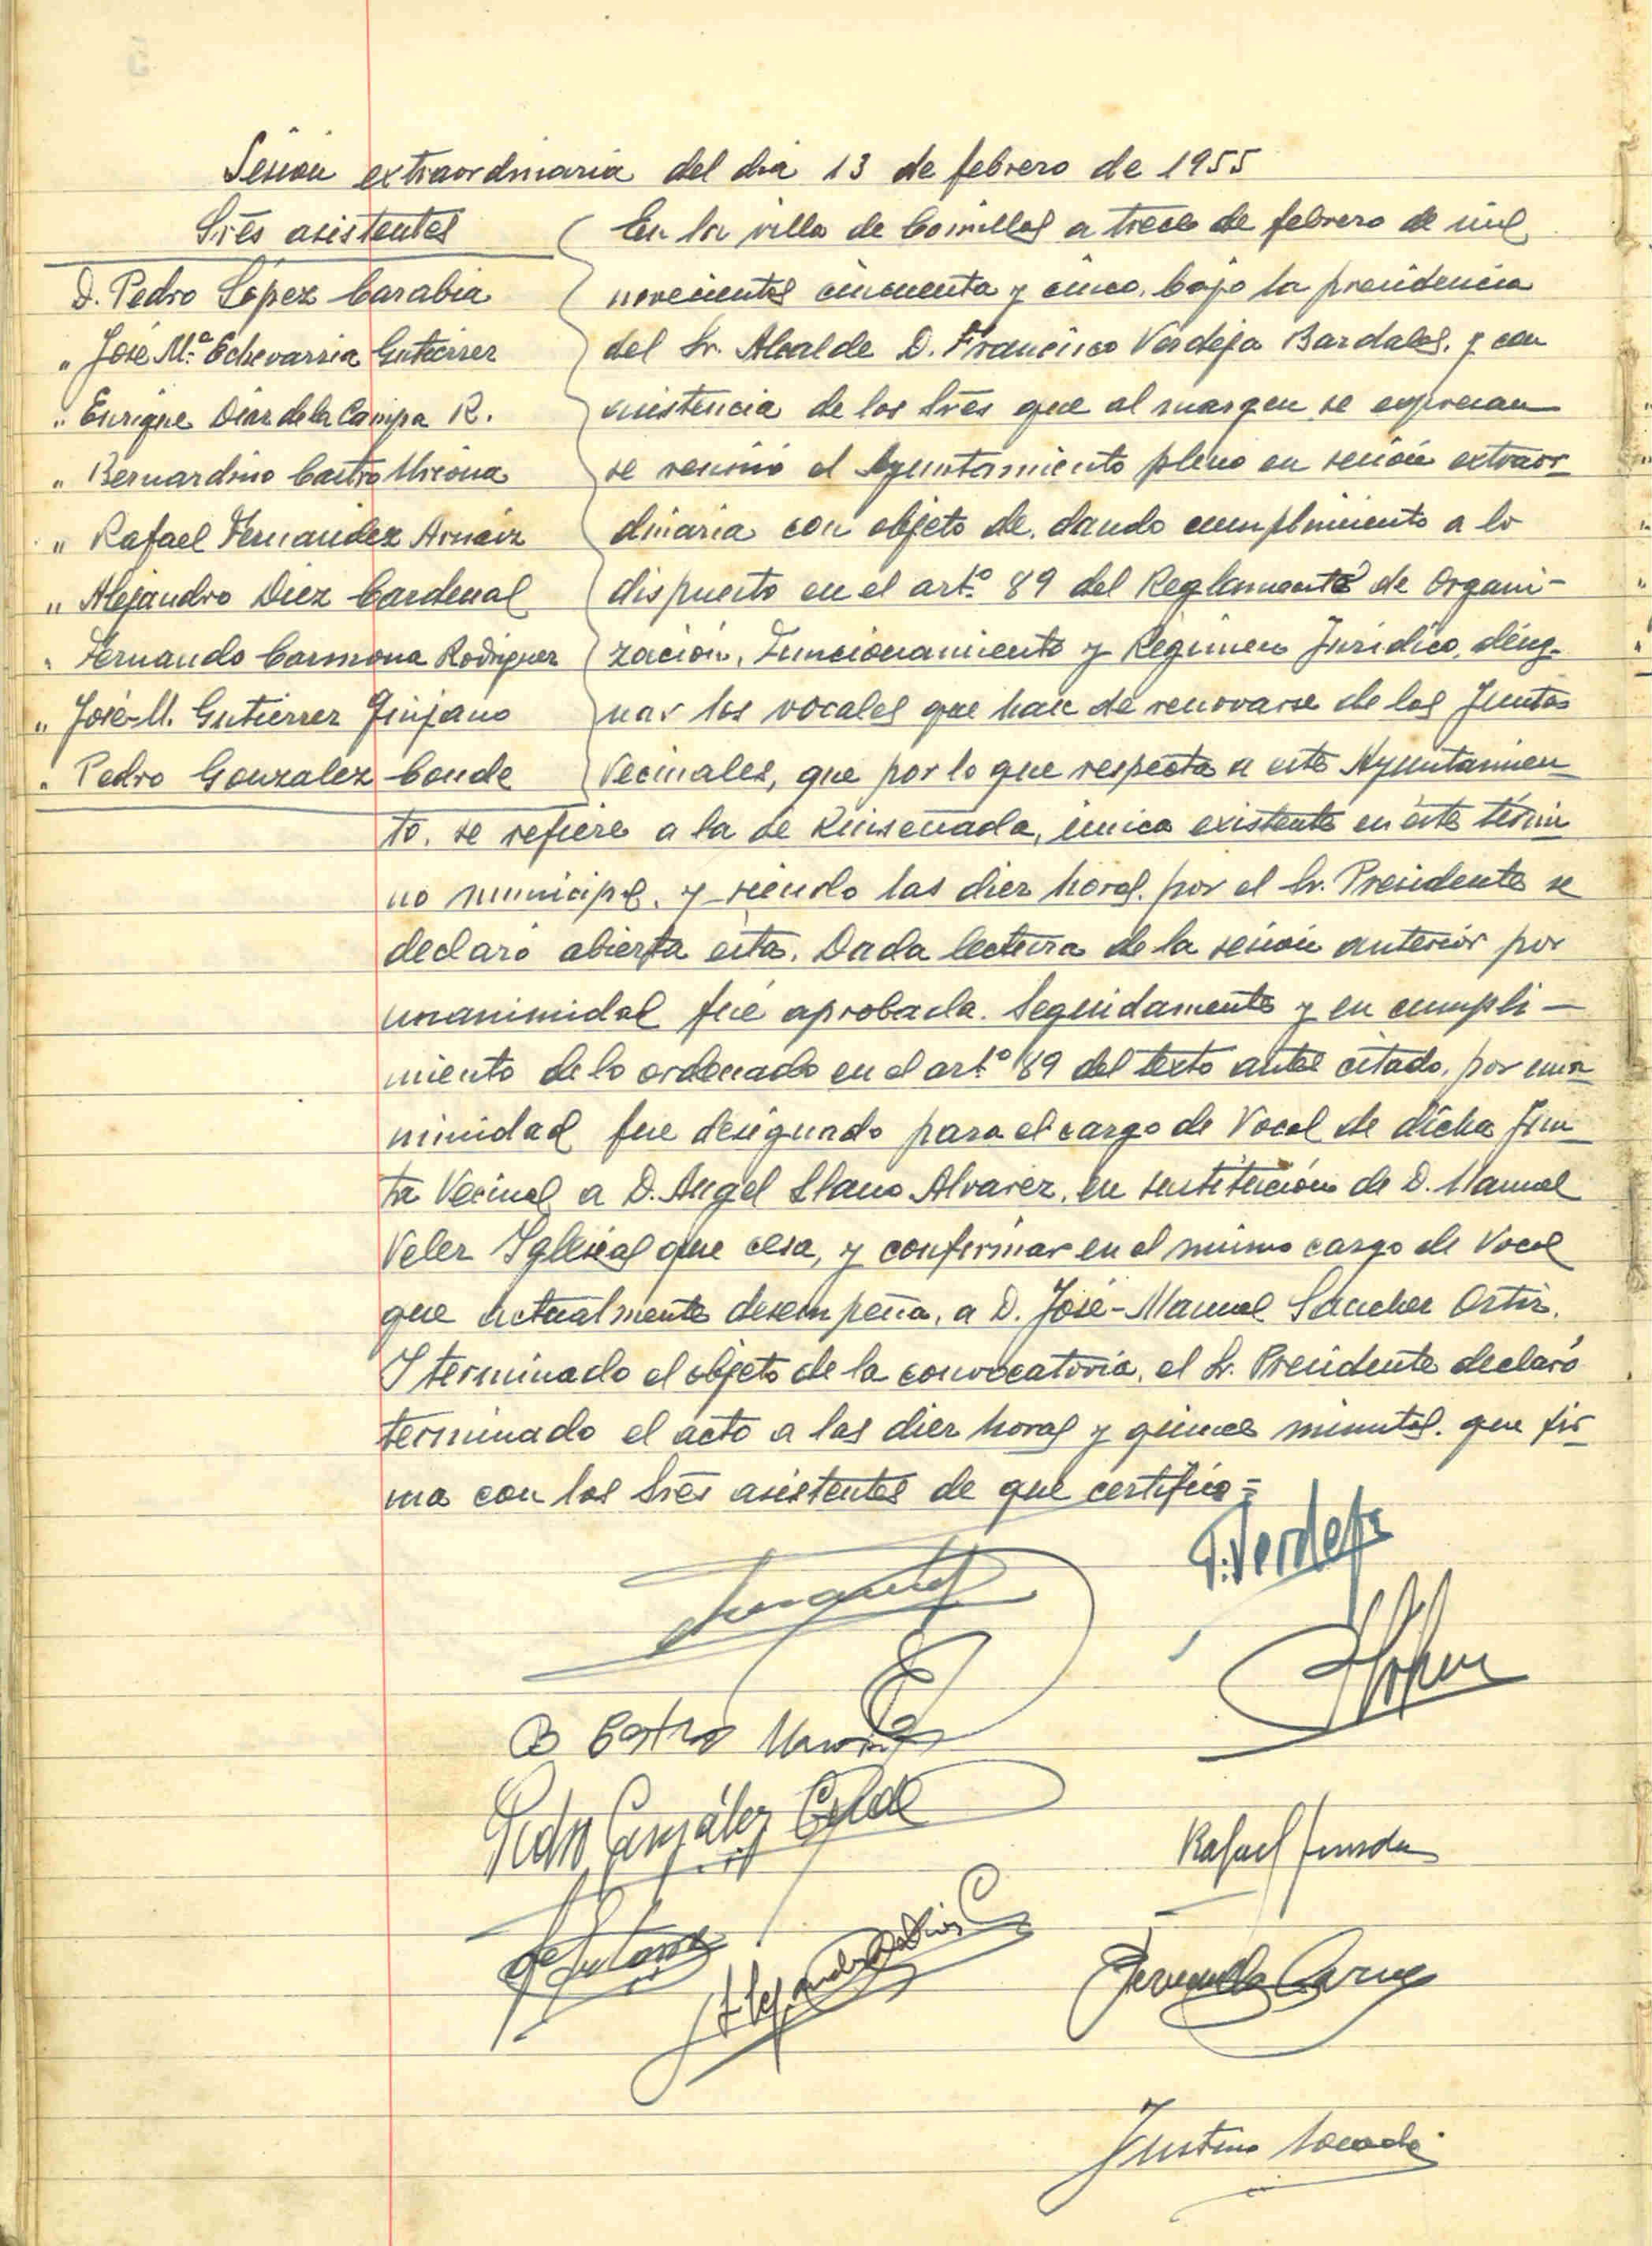 Sesion extraordinaria del dia 13 de febrero de 1955
Sres asistentes
D. Pedro López Carabia
" José Mª Echevarria Gutierrez
" Enrique Diaz de la Campa R.
" Bernardino Castro
" Rafael Fernandez Arnáiz
" Alejandro Diez Cardenal
" Fernando Carmona Rodriguez
" José-M. Gutierrez Quijano
" Pedro Gonzalez Conde
En la villa de Comillas a trece de febrero de mil
novecientos cincuenta y cinco, bajo la presidencia
del Sr. Alcalde D. Francisco Verdeja Bardales, y con
asistencia de los Sres que al margen se expresan
se reunió el Ayuntamiento pleno en sesión extraor
dinaria con objeto de, dando cumplimiento a lo
dispuesto en el artº 89 del Reglamento de Organi-
zación, Funcionamiento y Regimen Juridico, desig-
nar los vocales que han de renovarse de las Juntas
Vecinales, que por lo que respecta a este Ayuntamien
to, se refiere a la de Ruiseñada, única existente en éste térmi
no municipal, y siendo las diez horas, por el Sr. Presidente se
declaró abierta esta. Dada lectura de la sesión anterior por
unanimidad fué aprobada. Seguidamente y en cumpli-
miento de lo ordenado en el artº 89 del texto antes citado, por una
nimidad fue designado para el cargo de Vocal de dicha Jun
ta Vecinal a D. Angel Llano Alvarez, en sustitución de D. Manuel
Velez Iglesias que cesa, y confirmar en el mismo cargo de Vocal
que actualmente desempeña, a D. José-Manuel Sanchez Ortiz.
Y terminado el objeto de la convocatoria, el Sr. Presidente declaró
terminado el acto a las diez horas y quince minutos, que fir
ma con los Sres asistentes de que certifico=
F. Verdeja
B Castro
Pedro González Conde
Rafael
Alejandro Diez C
Fernando Carmo
Justino